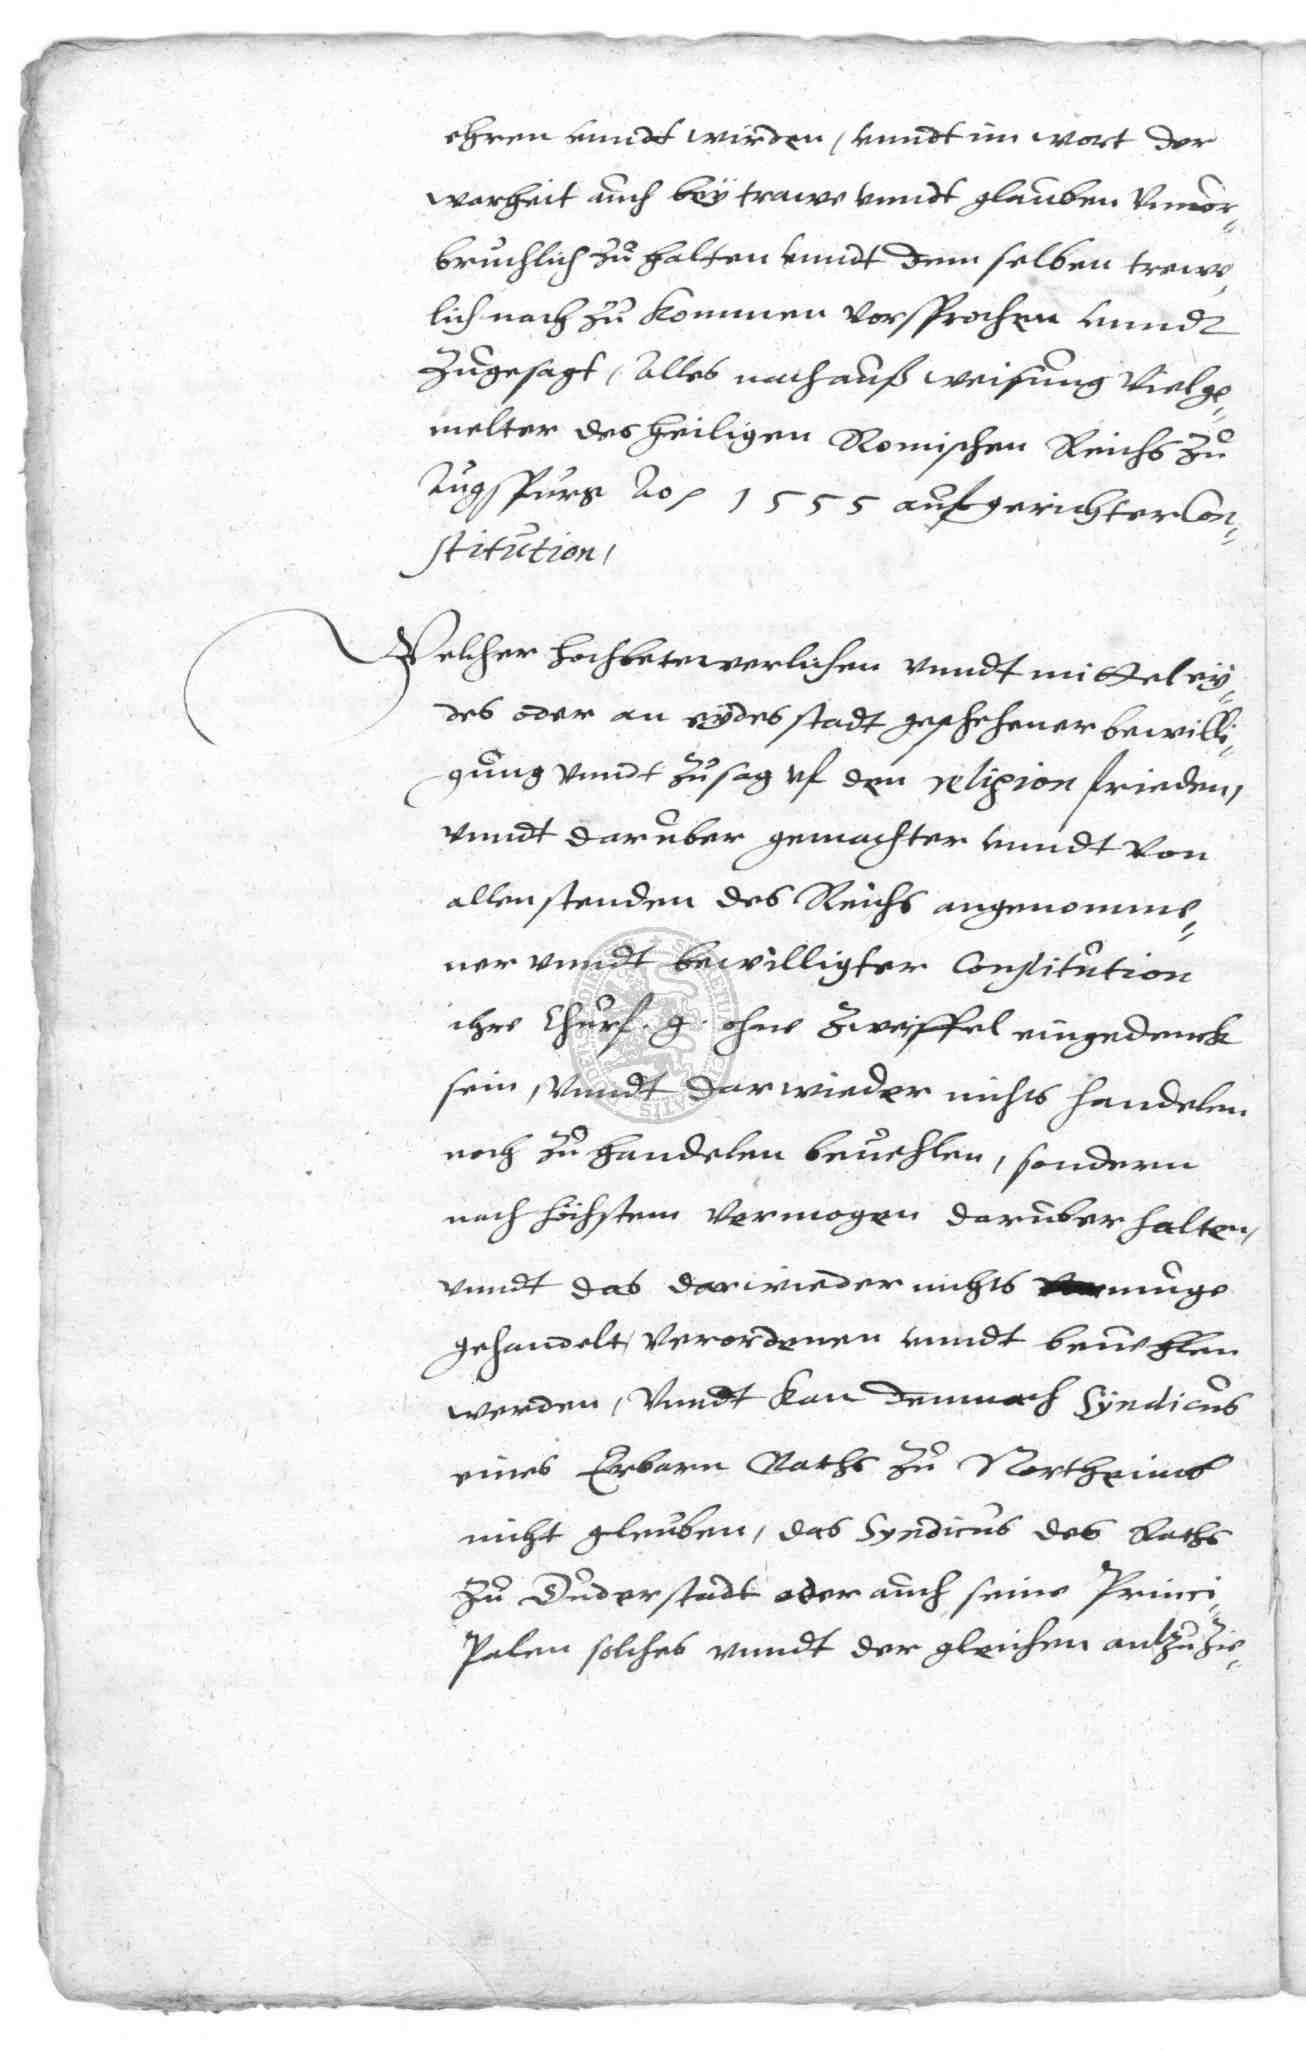 ehren vnndt wirden, vnndt im wort der
warheit auch beÿ trawe vnndt glauben vnuor=
bruchlich zu halten vnndt dem selben trew=
lich nach zu kommen vorsprochen vnndt
zugesagt, Alles nach auß weisung vielge=
melter des heiligen Romischen Reichs zu
Augspurg Ao, 1555 aufgerichter Con=
stitution,
Welcher hochbetewerlichen vnndt mittel eÿ=
des oder an eÿdes stadt geschehener bewilli=
gung vnndt zusag vf den religion frieden,
vnndt daruber gemachter vnndt von
allen stenden des Reichs angenomme=
ner vnndt bewilligter Constitution
ihre Churf. g. ohne Zweiffel eingedenck
sein, vnndt darwieder nichts handelen
noch zu handelen beuehlen, sondern
nach höchstem vermogen daruber halten,
vnndt das darwieder nichts muge
gehandelt, verordenen vnndt beuehlen
werden, vnndt kan demnach Sÿndicus
eines Erbarn Raths zu Northeimb
nicht gleuben, das Syndicus des Raths
zu Duderstadt oder auch seine Princi=
palen solches vnndt der gleichen antzuzie=